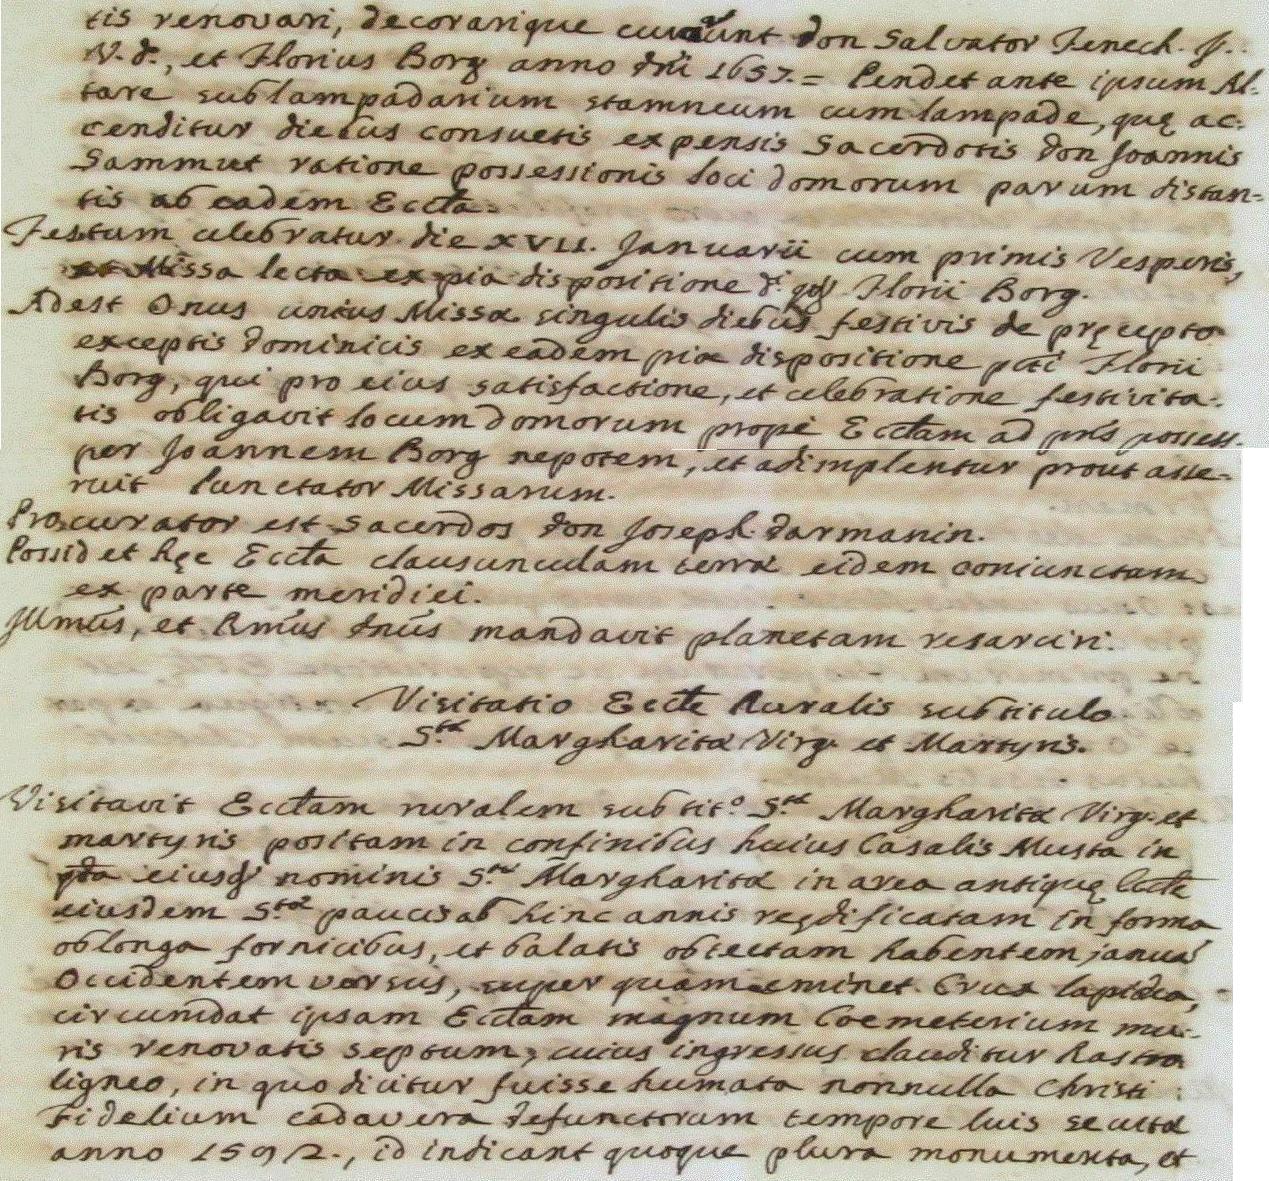 tis renovari, decorarique curarunt Don Salvator Fenech J.
V. D., et Florius Borg anno dñi 1657. = Pendet ante ipsum Al-
tare sublampadarium stamneum cum lampade, quę ac-
cenditur diebus consuetis expensis Sacerdotis Don Joannis
Sammut ratione possessionis loci domorum parum distan-
tis ab eadem Eccta.
Festum celebratur die XVII. Januarii cum primis Vesperis,
et Missa lecta ex pia dispositione d. qđ Florii Borg.
Adest Onus unius Missæ singulis diebus festivis de pręcepto
exceptis dominicis ex eadem pia dispositione pti Florii
Borg, qui pro eius satisfactione, et celebratione festivita-
tis obligavit locum domorum propè Ecctam ad pñs possess.
per Joannem Borg nepotem, et adimplentur prout asse-
ruit Punctator Missarum.
Procurator est Sacerdos Don Joseph Darmanin.
Possidet hęc Eccta clausunculam terræ eidem coniunctam
ex parte meridiei.
Illmũs, et Rmũs Dnũs mandavit planetam resarciri.
Visitatio Eccte Ruralis sub titulo
S.tæ Margharitæ Virg. et Martyris.
Visitavit Ecctam ruralem sub tit.o S.tæ Margharitæ Virg. et
martyris positam in confinibus huius Casalis Musta in
eiusđ nominis S.tæ Margharitæ in area antiquę Eccte
eiusdem S.tæ paucis ab hinc annis reędificatam in forma
oblonga fornicibus, et balatis obtectam habentem januã
Occidentem versus, super quam eminet Crux lapidea,
circumdat ipsam Ecctam magnum Coemeterium mu-
ris renovatis septum, cuius ingressus clauditur Rastro
ligneo, in quo dicitur fuisse humata nonnulla Christi
Fidelium cadavera defunctorum tempore luis secutæ
anno 1592., id indicant quoque plura monumenta, et